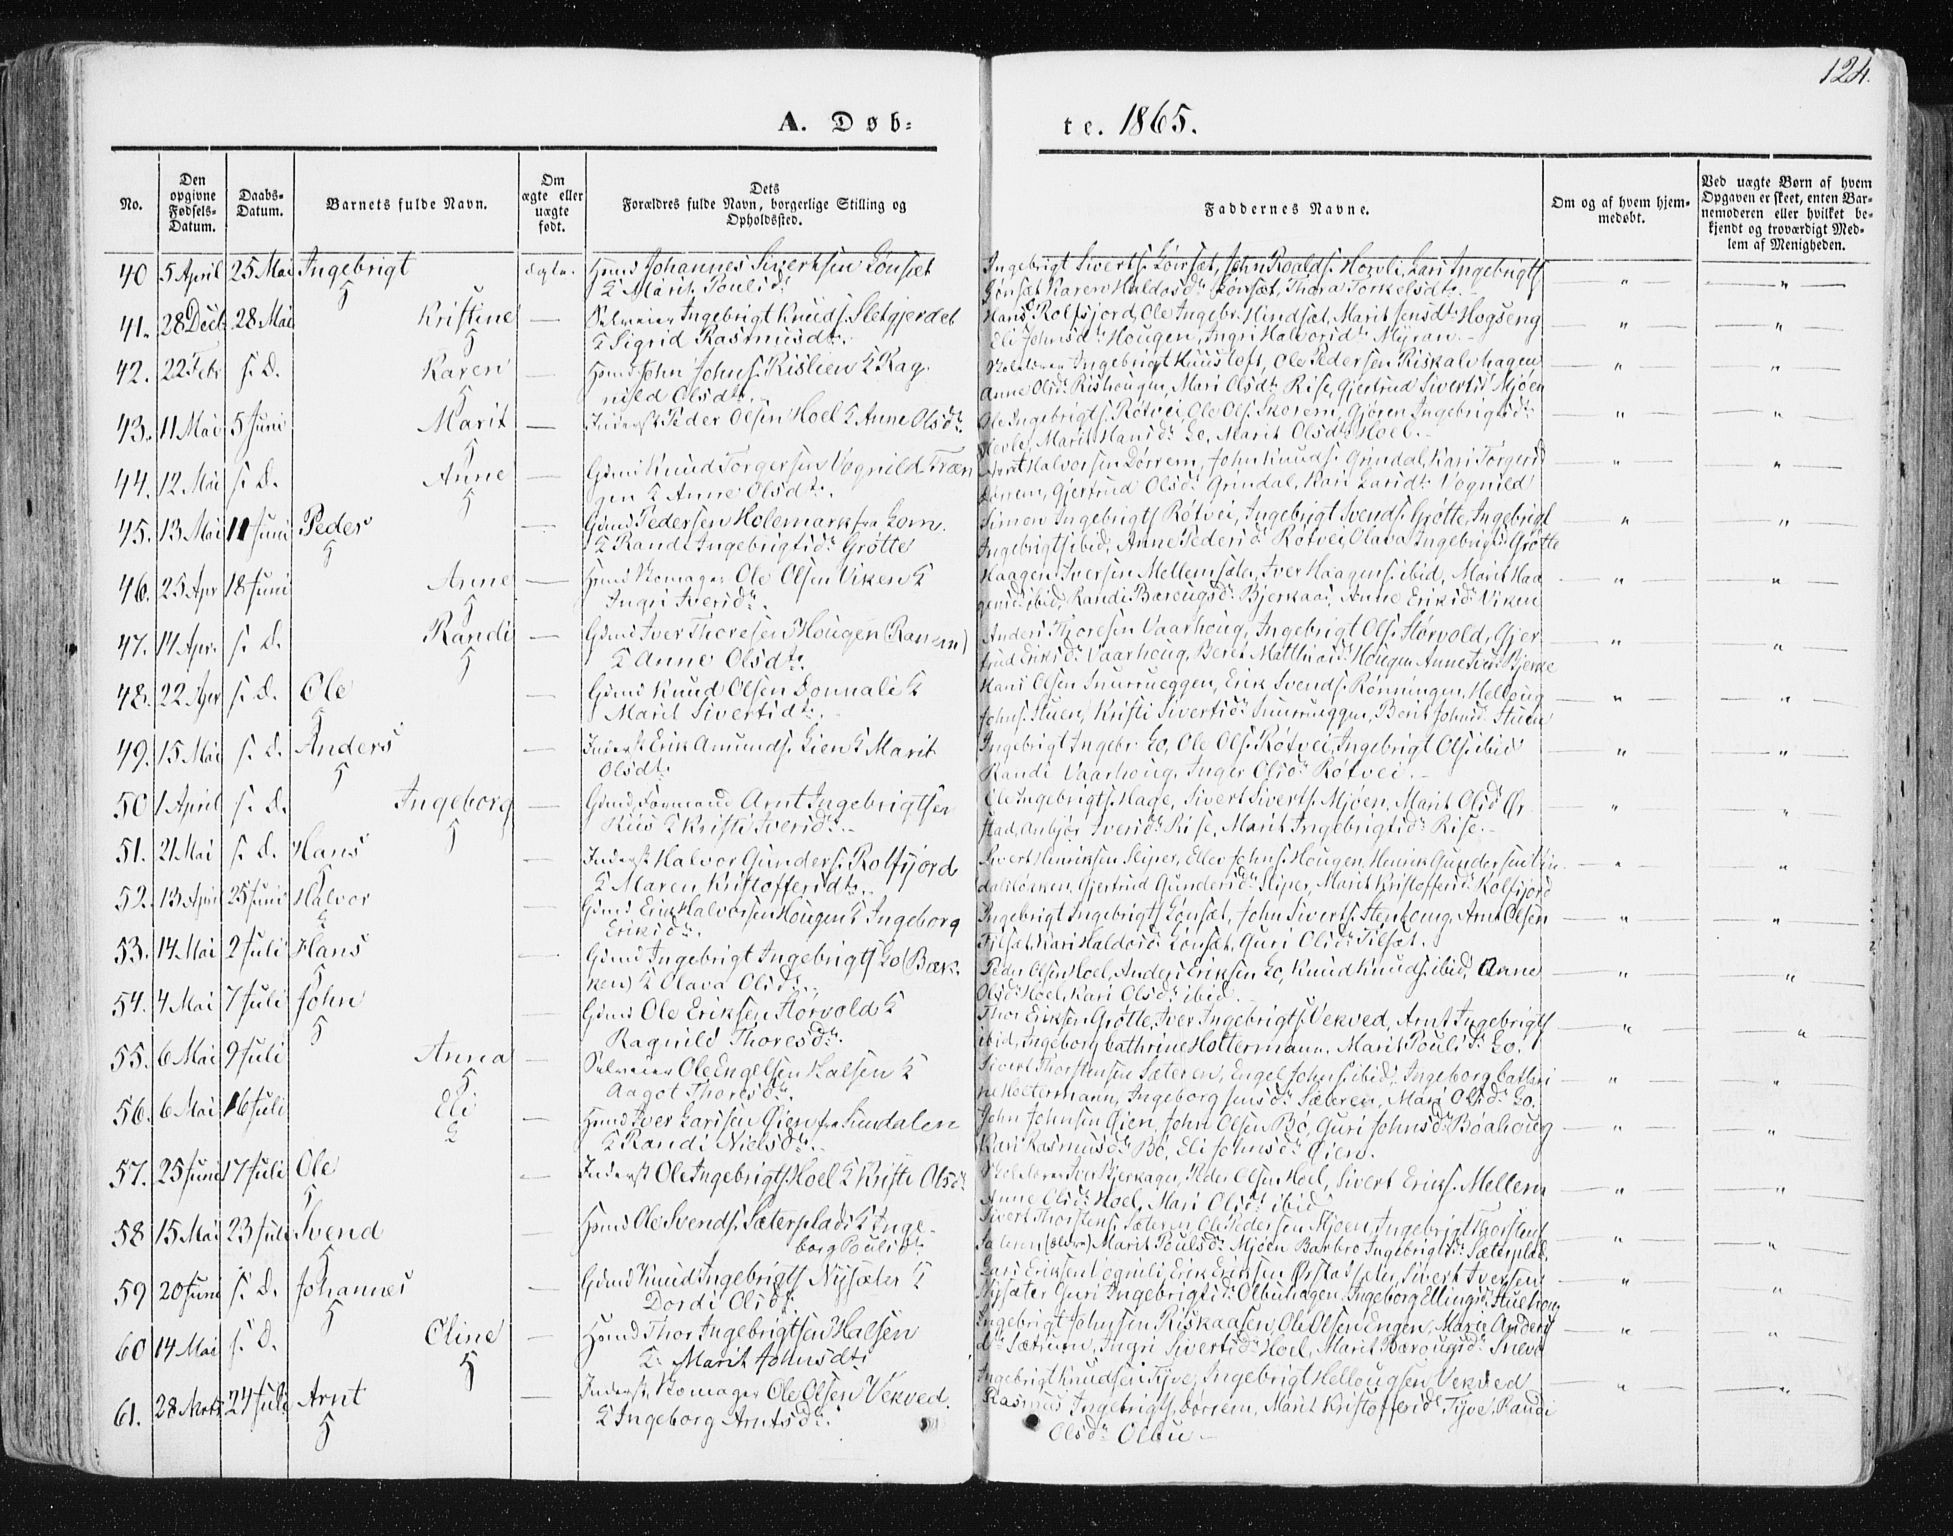 124.
A. Døb-
te. 1865.
No.
Den opgivne Fødsels-Datum.
Daabs-Datum.
Barnets fulde Navn.
Om ægte eller uægte født.
Dets Forældres fulde Navn, borgerlige Stilling og Opholdssted.
Faddernes Navne.
Om og af hvem hjemmedøbt.
Ved uægte Børn af hvem Opgaven er skeet, enten Barnemoderen eller hvilket bekjendt og troværdigt Medlem af Menigheden.
40 5 April 25 Mai Ingebrigt ægte. Johannes Sivertsen Lønset
& Marit Poulsd.
Ingebrigt Siverts. Lønset, John Roalds. Horvli, Lars Ingebrigts
Lønset Karen Haldosdr Lønset, Thora Torkelsdtr.
41. 28 Decb 28 Mai Kristine — Selveier Ingebrigt Knuds. Sletgjerdet
& Sigrid Rasmusdtr.
Hans Rolfsjord, Ole Ingebr. Hindset, Marit Jensdtr Hogseng
Eli Johnsdr Hougen, Ingri Halvorsdr Myran.
42. 22 Febr s. D. Karen — John Johns. Rislien & Rag-
nild Olsdtr.
Ingebrigt Kuustoft, Ole Pedersen Riskalvhagen
Anne Olsdr Rishougen, Mari Olsdr Rise, Gjertrud Sivertsd Mjøen
43. 11 Mai 5 Juni Marit — Inderst Peder Olsen Hoel & Anne Olsdr.
Ole Ingebrigts. Røtvei, Ole Ols. Skorem, Gjøren Ingebrigtsdr
Marit Hansdr Lo, Marit Olsdtr Hoel.
44. 12 Mai s. D. Anne — Gbmd Knud Torgersen Vognild Træn
gen & Anne Olsdtr.
Arnt Halvorsen Dørrem, John Knuds. Grindal, Kari Torgersd
Dørrem, Gjertrud Olsdr Grindal, Kari Larsdtr Vognild
45. 13 Mai 11 Juni Peder Pedersen Holemark fra Lom.
& Randi Ingebrigtsdr Grøtte
Simen Ingebrigts Røtvei, Ingebrigt Svends. Grøtte, Ingebrigt
Ingebrigts ibid, Anne Pedersd Røtvei, Olava Ingebrigtsd Grøtte
46. 25 Apr 18 Juni Anne — Ole Olsen Viken &
Ingri Iversdr.
Haagen Iversen Mellemsæter, Iver Haagens. ibid, Marit Haa
gensdr ibid, Randi Barougsdr Bjerkaas, Anne Eriksdr Viken
47. 17 Apr. s. D. Randi — Gbmd Iver Thoresen Hougen (Ranem)
& Anne Olsdtr.
Anders Thoresen Vaarhoug, Ingebrigt Ols. Størvold, Gjer
trud Eriksdr Vaarhoug, Beret Matthiasdr Hougen Anne Iversd Bjerke
48. 22 Apr s. D. Ole — Gbmd Knud Olsen Donnali &
Marit Sivertsdtr.
Hans Olsen Snurrueggen, Erik Svends. Rønningen, Helloug
Johns. Stuen, Kristi Sivertsdr Snurrueggen, Berit Johnsdr Stuen
49. 15 Mai s. D. Anders — Inderst Erik Amunds. Lien & Marit
Olsdtr.
Ingebrigt Ingebr. Lo, Ole Ols. Røtvei, Ingebrigt Ols. ibid
Randi Vaarhoug, Inger Olsdr Røtvei.
50 1 April s. D. Ingeborg — Gbmd Formand Arnt Ingebrigtsen
Huus & Kristi Iversdr.
Ole Ingebrigts. Hage, Sivert Siverts. Mjøen, Marit Olsd Ør-
stad, Anbjør Iversdr Rise, Marit Ingebrigtsdr Rise.
51. 21 Mai s. D. Hans — Inderst Halvor Gunders. Rolfsjord
& Maren Kristoffersdtr.
Sivert Henriksen Sliper, Ellev Johns. Hougen, Henrik Gundersen
Gjertrud Gundersdr Sliper, Marit Kristoffersd Rolfsjord
52. 13 April 25 Juni Halvor — Gbmd Erik Halvorsen Hougen & Ingeborg
Eriksdr.
Ingebrigt Ingebrigts Lønset, John Siverts. Stenhoug, Arnt Olsen
Tilset, Kari Haldosd. Lønset, Guri Olsdr Tilset.
53. 14 Mai 2 Juli Hans — Gbmd Ingebrigt Ingebrigts Lo (Bæk-
ken) & Olava Olsdr.
Peder Olsen Hoel, Anders Eriksen Lo, Knud Knuds. ibid, Anne
Olsdr Hoel, Kari Olsdr ibid.
54. 4 Mai 7 Juli John — Gbmd Ole Eriksen Størvold &
Ragnild Thoresdr.
Thor Eriksen Grøtte, Iver Ingebrigts. Vekved, Arnt Ingebrigts
ibid, Ingeborg Cathrine Holtermann, Marit Poulsdr Lo.
55. 6 Mai 9 Juli Anna — Selveier Ole Engelsen Halsen &
Aagot Thoresdr.
Sivert Thorstensen Sæteren, Engel Johns. ibid, Ingeborg Cathri
ne Holtermann, Ingeborg Jensdr Sæteren, Mari Olsdr Lo.
56. 6 Mai 16 Juli Eli — Iver Larssen Øien fra Sundalen
& Randi Nielsdr.
John Johnsen Øien, John Olsen Bø, Guri Johnsdr Bøahoug
Kari Rasmusdr Bø, Eli Johnsdr Øien.
57. 25 Juni 17 Juli Ole — Inderst Ole Ingebrigts Hoel & Kristi Olsdr
Iver Bjerkager, Peder Olsen Hoel, Sivert Eriks. Mellem
Anne Olsdr Hoel, Mari Olsdr ibid
58 15 Mai 23 Juli Svend Ole Svends. Sæterplads & Inge-
borg Poulsdtr.
Sivert Thorstens. Sæteren, Ole Pedersen Mjøen, Ingebrigt Thorstens
Sæteren (ældre) Marit Poulsdr Mjøen Barbro Ingebrigtsdr Sæterplads
59 20 Juni s. D. Johannes Gbmd Knud Ingebrigts Nysæter &
Dordi Olsdtr.
Lars Eriksen Vognild, Erik Eriksen Ørstadsæter, Sivert Iversen
Nysæter Guri Ingebrigtsdr Olbuhagen, Ingeborg Ellingsd
60 14 Mai s. D. Eline — Hbmd Thor Ingebrigtsen Halsen
& Marit Johnsdtr
Ingebrigt Johnsen Riskaasen, Ole Olsen Engen, Maren Anders
dr Sætrum, Ingri Sivertsdr Hoel, Marit Barougsdr Sneve
61. 28 Marts 24 Juli Arnt — Inderst, Skomager Ole Olsen Vekved
& Ingeborg Arntsdr.
Ingebrigt Knudsen Tyve, Ingebrigt Hellougsen Vekved
Rasmus Ingebrigts. Dørrem, Marit Kristoffersdr Tyve, Randi
Olsdr Olbu